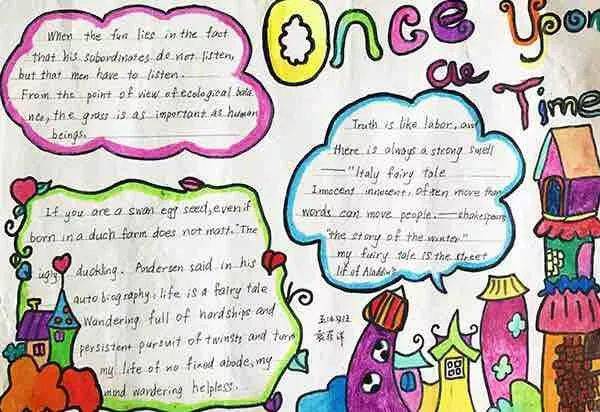 Once Upon
a
Time
When the fun lies in the fact
that his subordinates do not listen,
but that men have to listen.
From the point of view of ecological bala
nce, the grass is as important as human
beings.
Truth is like labor, an
there is always a strong smell
—"Italy fairy tale
Innocent innocent, often more than
words can move people.——shakespears
"the story of the winter"
my fairy tale is the street
lit of Aladdin"
If you are a swan egg seed, even if
born in a duck farm does not matt. "The
ugly duckling. Andersen said in his
autobiography: life is a fairy tale
Wandering full of hardships and
persistent pursuit of twinsty and turn
my life of no fixed abode, my
mind wandering helpless.